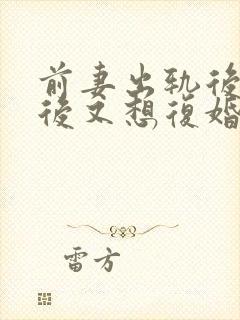 前妻出軌後
後又想復婚
雷方